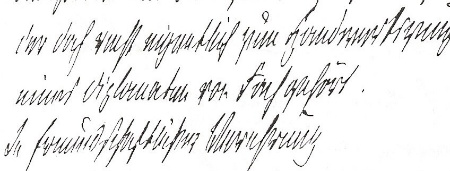 der doch recht eigentlich zum Handwerkszeug
eines Diplomaten von Fach gehört.
In freundschaftlicher Verehrung